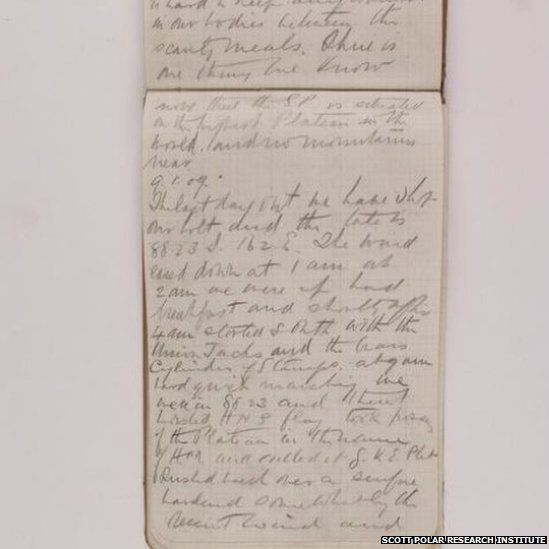 in our bodies between the
scanty meals. There is
one thing we know
now that the S.P. is situated
on the highest Plateau in the
world, and no mountains
near
9.1.09.
The last day out we have shot
our bolt and the late is
88.23 S. 162 E. The wind
eased down at 1 am at
2 am we were up had
breakfast and shortly after
4 am started South with the
Union Jacks and the brass
Cylinder of Stamps. at 9 am
hard quick marching we
were in 88.23 and there
hoisted H M's flag took possn
of the Plateau in the name
of HM and called it K E Plat
Rushed back over a surface
hardened somewhat by the
recent wind and
SCOTT POLAR RESEARCH INSTITUTE